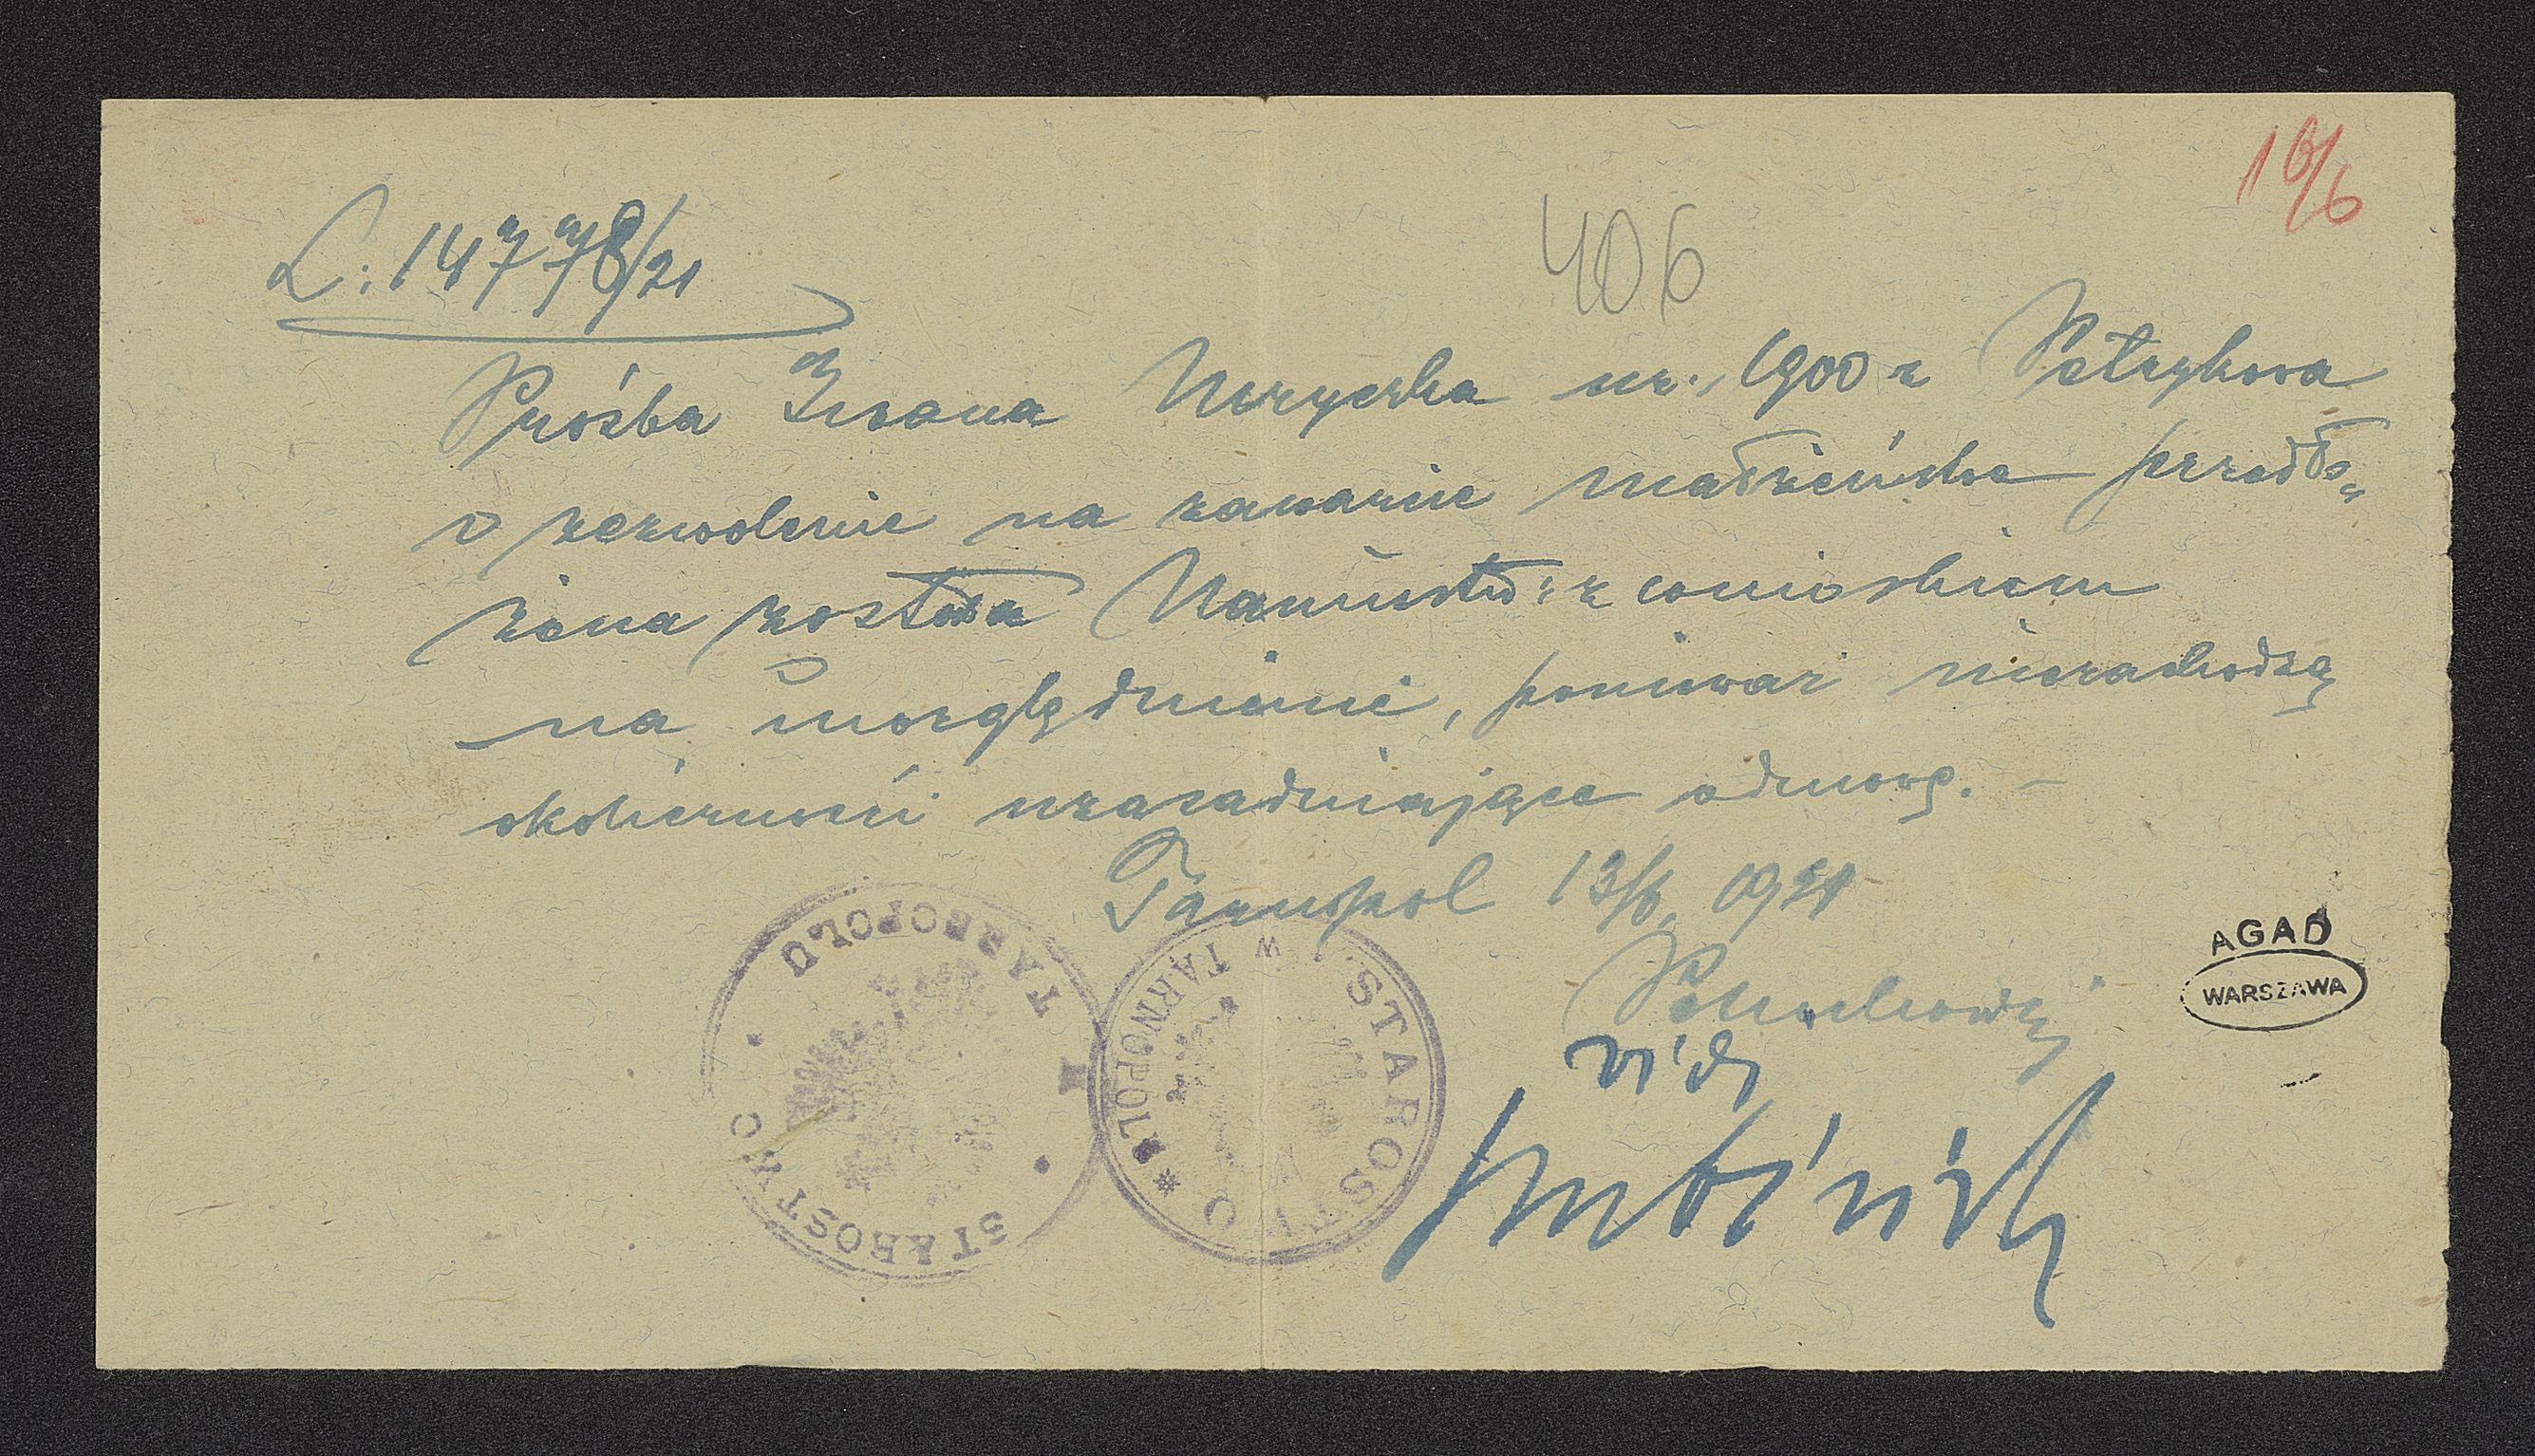 16/6
406
L: 14778/21
Prośba Iwana ur. 1900 z Petrykowa
o zezwolenie na zawarcie małżeństwa przedło„
żona została Namiestn: z wnioskiem
na uwzględnienie, ponieważ niezachodzą
okoliczności uzasadniające odmowę. –
Tarnopol 13/6. 1921
vidi
STAROSTWO W TARNOPOLU
STAROSTWO W TARNOPOLU
AGAD
WARSZAWA